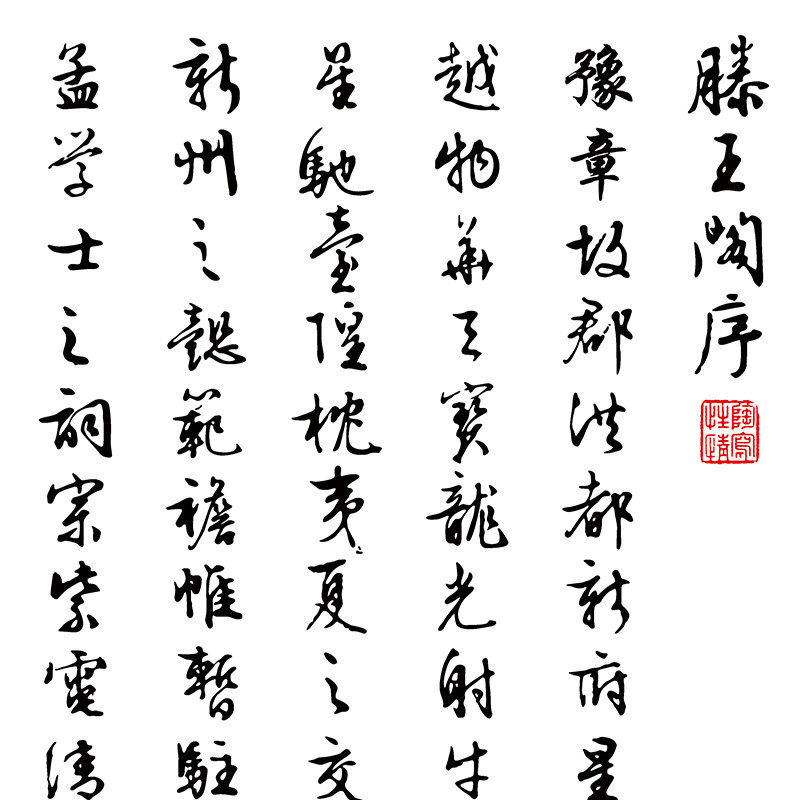 滕王閣序
陶寫性情
豫章故郡洪都新府星
越物華天寶龍光射牛
星馳臺隍枕夷夏之交
新州之懿範襜帷暫駐
孟学士之詞宗紫電清